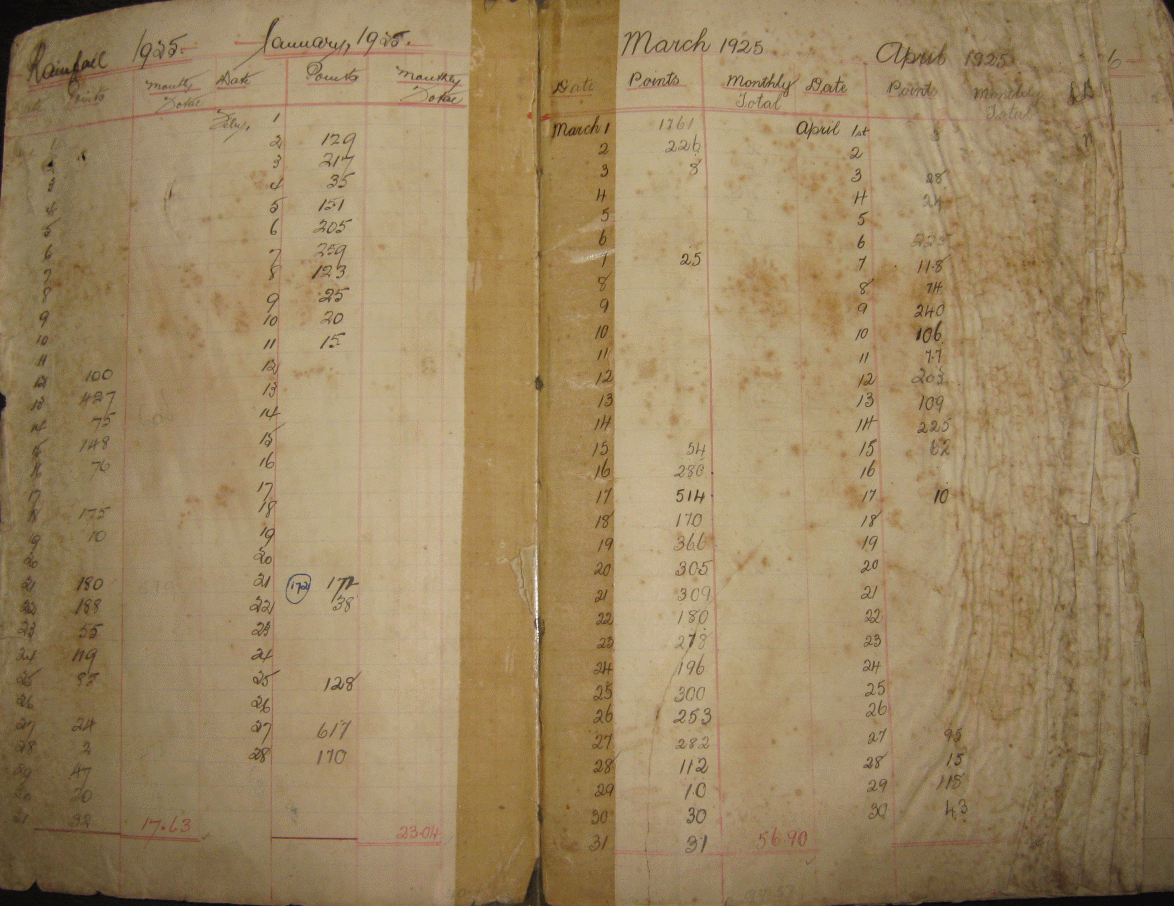 Rainfall 1925. January, 1925.
Points Monthly Total
1
2
3
4
5
6
7
8
9
10
11
12 100
13 427
14 75
15 148
16 76
17
18 175
19 10
20
21 180
22 188
23 55
24 119
25 85
26
27 24
28 2
29 47
30 20
31 32
17.63
Date Points Monthly Total
Feby. 1
2 129
3 217
4 35
5 151
6 205
7 259
8 123
9 25
10 20
11 15
12
13
14
15
16
17
18
19
20
21 172 172
22 38
23
24
25 128
26
27 617
28 170
23.04
March 1925
Date Points Monthly Total
March 1 1761
2 226
3 3
4
5
6
7 25
8
9
10
11
12
13
14
15 54
16 286
17 514
18 170
19 366
20 305
21 309
22 180
23 278
24 196
25 300
26 253
27 282
28 112
29 10
30 30
31 31
56.90
April 1925
Date Points Monthly Total
April 1st 3
2
3 28
4 24
5
6 225
7 118
8 74
9 240
10 106
11 77
12 203
13 109
14 225
15 62
16
17 10
18
19
20
21
22
23
24
25
26
27 95
28 15
29 118
30 43